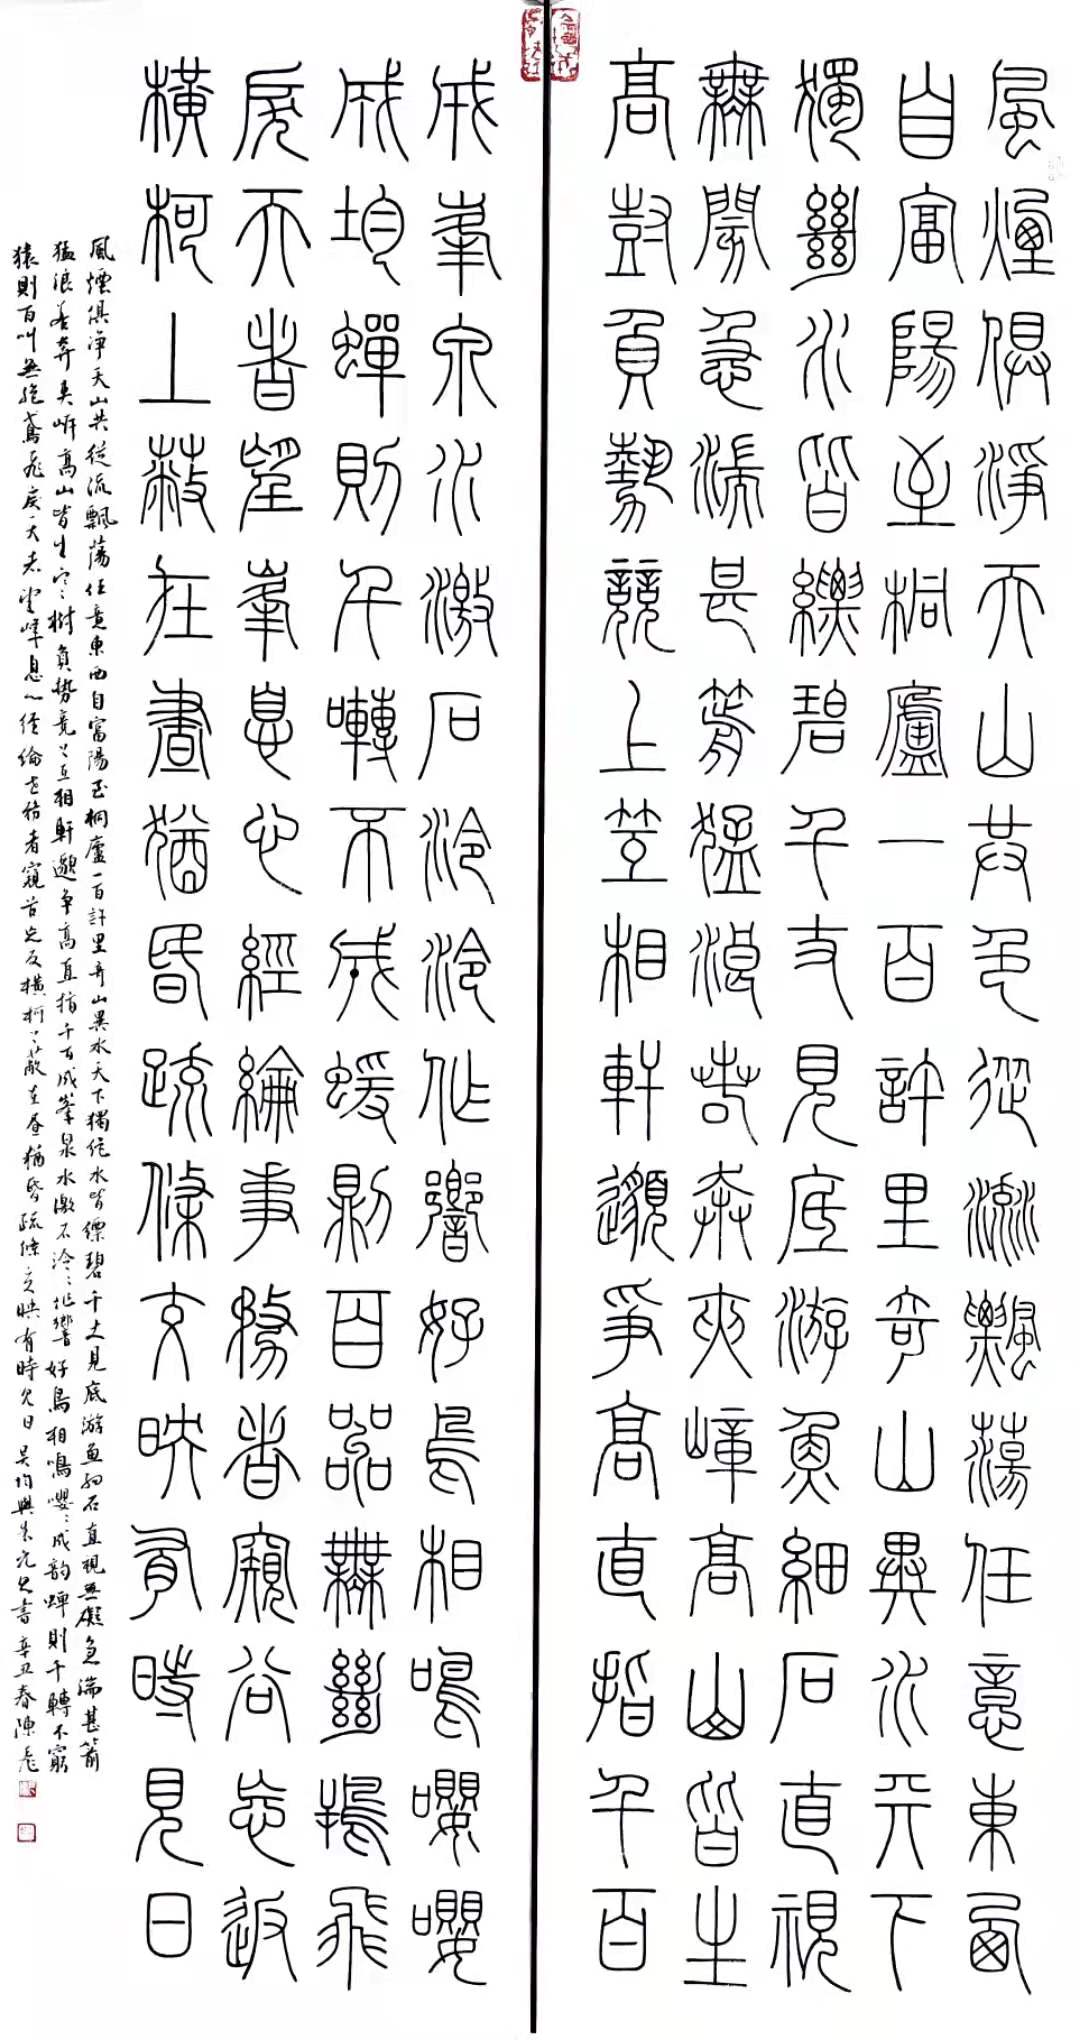 風煙俱淨天山共色從流飄蕩任意東西
自富陽至桐廬一百許里奇山異水天下
獨絕水皆縹碧千丈見底游魚細石直視
無閡急湍甚箭猛浪若奔夾嶂高山皆生
高尌負勢競上互相軒邈爭高直指千百
成峯泉水激石泠泠作響好鳥相鳴嚶嚶
成均蟬則千囀不窮蝯則百㗊無絕鳶飛
戾天者望峯息心經綸事務者窺谷忘返
橫柯上蔽在晝猶昏疏條交映有時見日
風煙俱淨天山共從流飄蕩任意東西自富陽至桐廬一百許里奇山異水天下獨絕水皆縹碧千丈見底游魚細石直視無礙急湍甚箭
猛浪若奔夾岸高山皆生寒樹負勢競上互相軒邈爭高直指千百成峯泉水激石泠泠作響好鳥相鳴嚶嚶成韵蟬則千轉不窮
猿則百叫無絕鳶飛戾天者望峰息心經綸世務者窺谷忘反橫柯上蔽在晝猶昏疏條交映有時見日吳均與朱元思書辛丑春陳飛